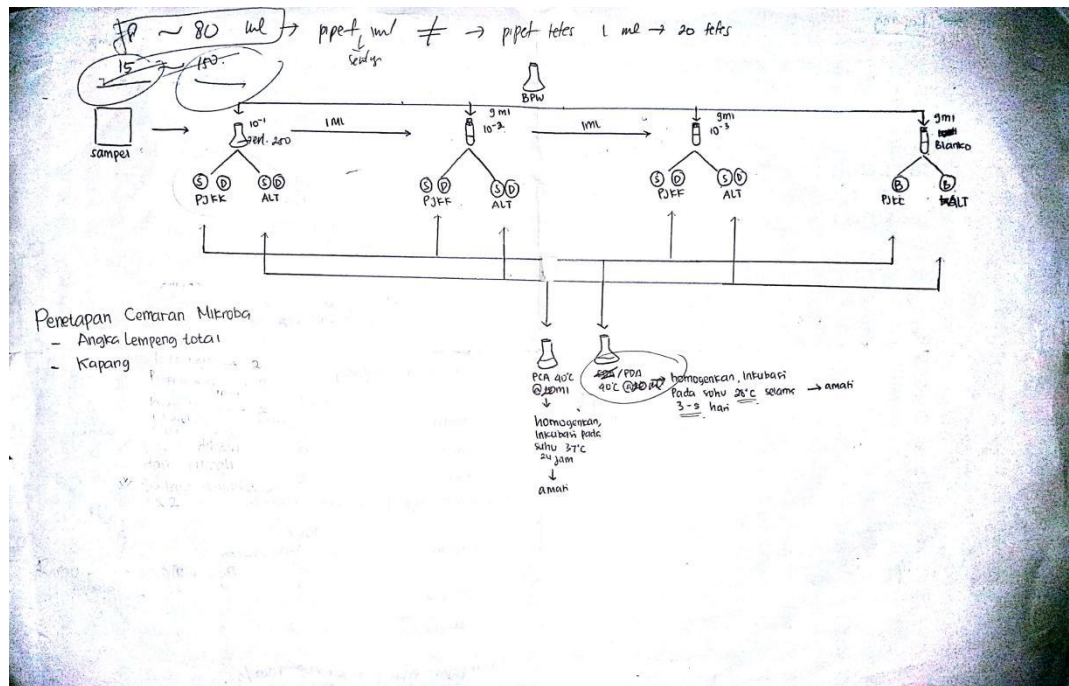 ~ 80 ml → pipet 1 ml ≠ → pipet tetes 1 ml → 20 tetes
15 ~ 150.
BPW
sampel
10⁻¹
1ML
9ml
10⁻²
1ML
9ml
10⁻³
9ml
Blanko
S D
PJKK
S D
ALT
S D
PJKK
S D
ALT
S D
PJKK
S D
ALT
B
PJKK
B
ALT
Penetapan Cemaran Mikroba
- Angka Lempeng total
- Kapang
PCA 40°C
homogenkan,
Inkubasi pada
suhu 37°C
24 jam
↓
amati
/PDA
40°C
homogenkan, Inkubasi
Pada suhu 28°C selama → amati
3-5 hari